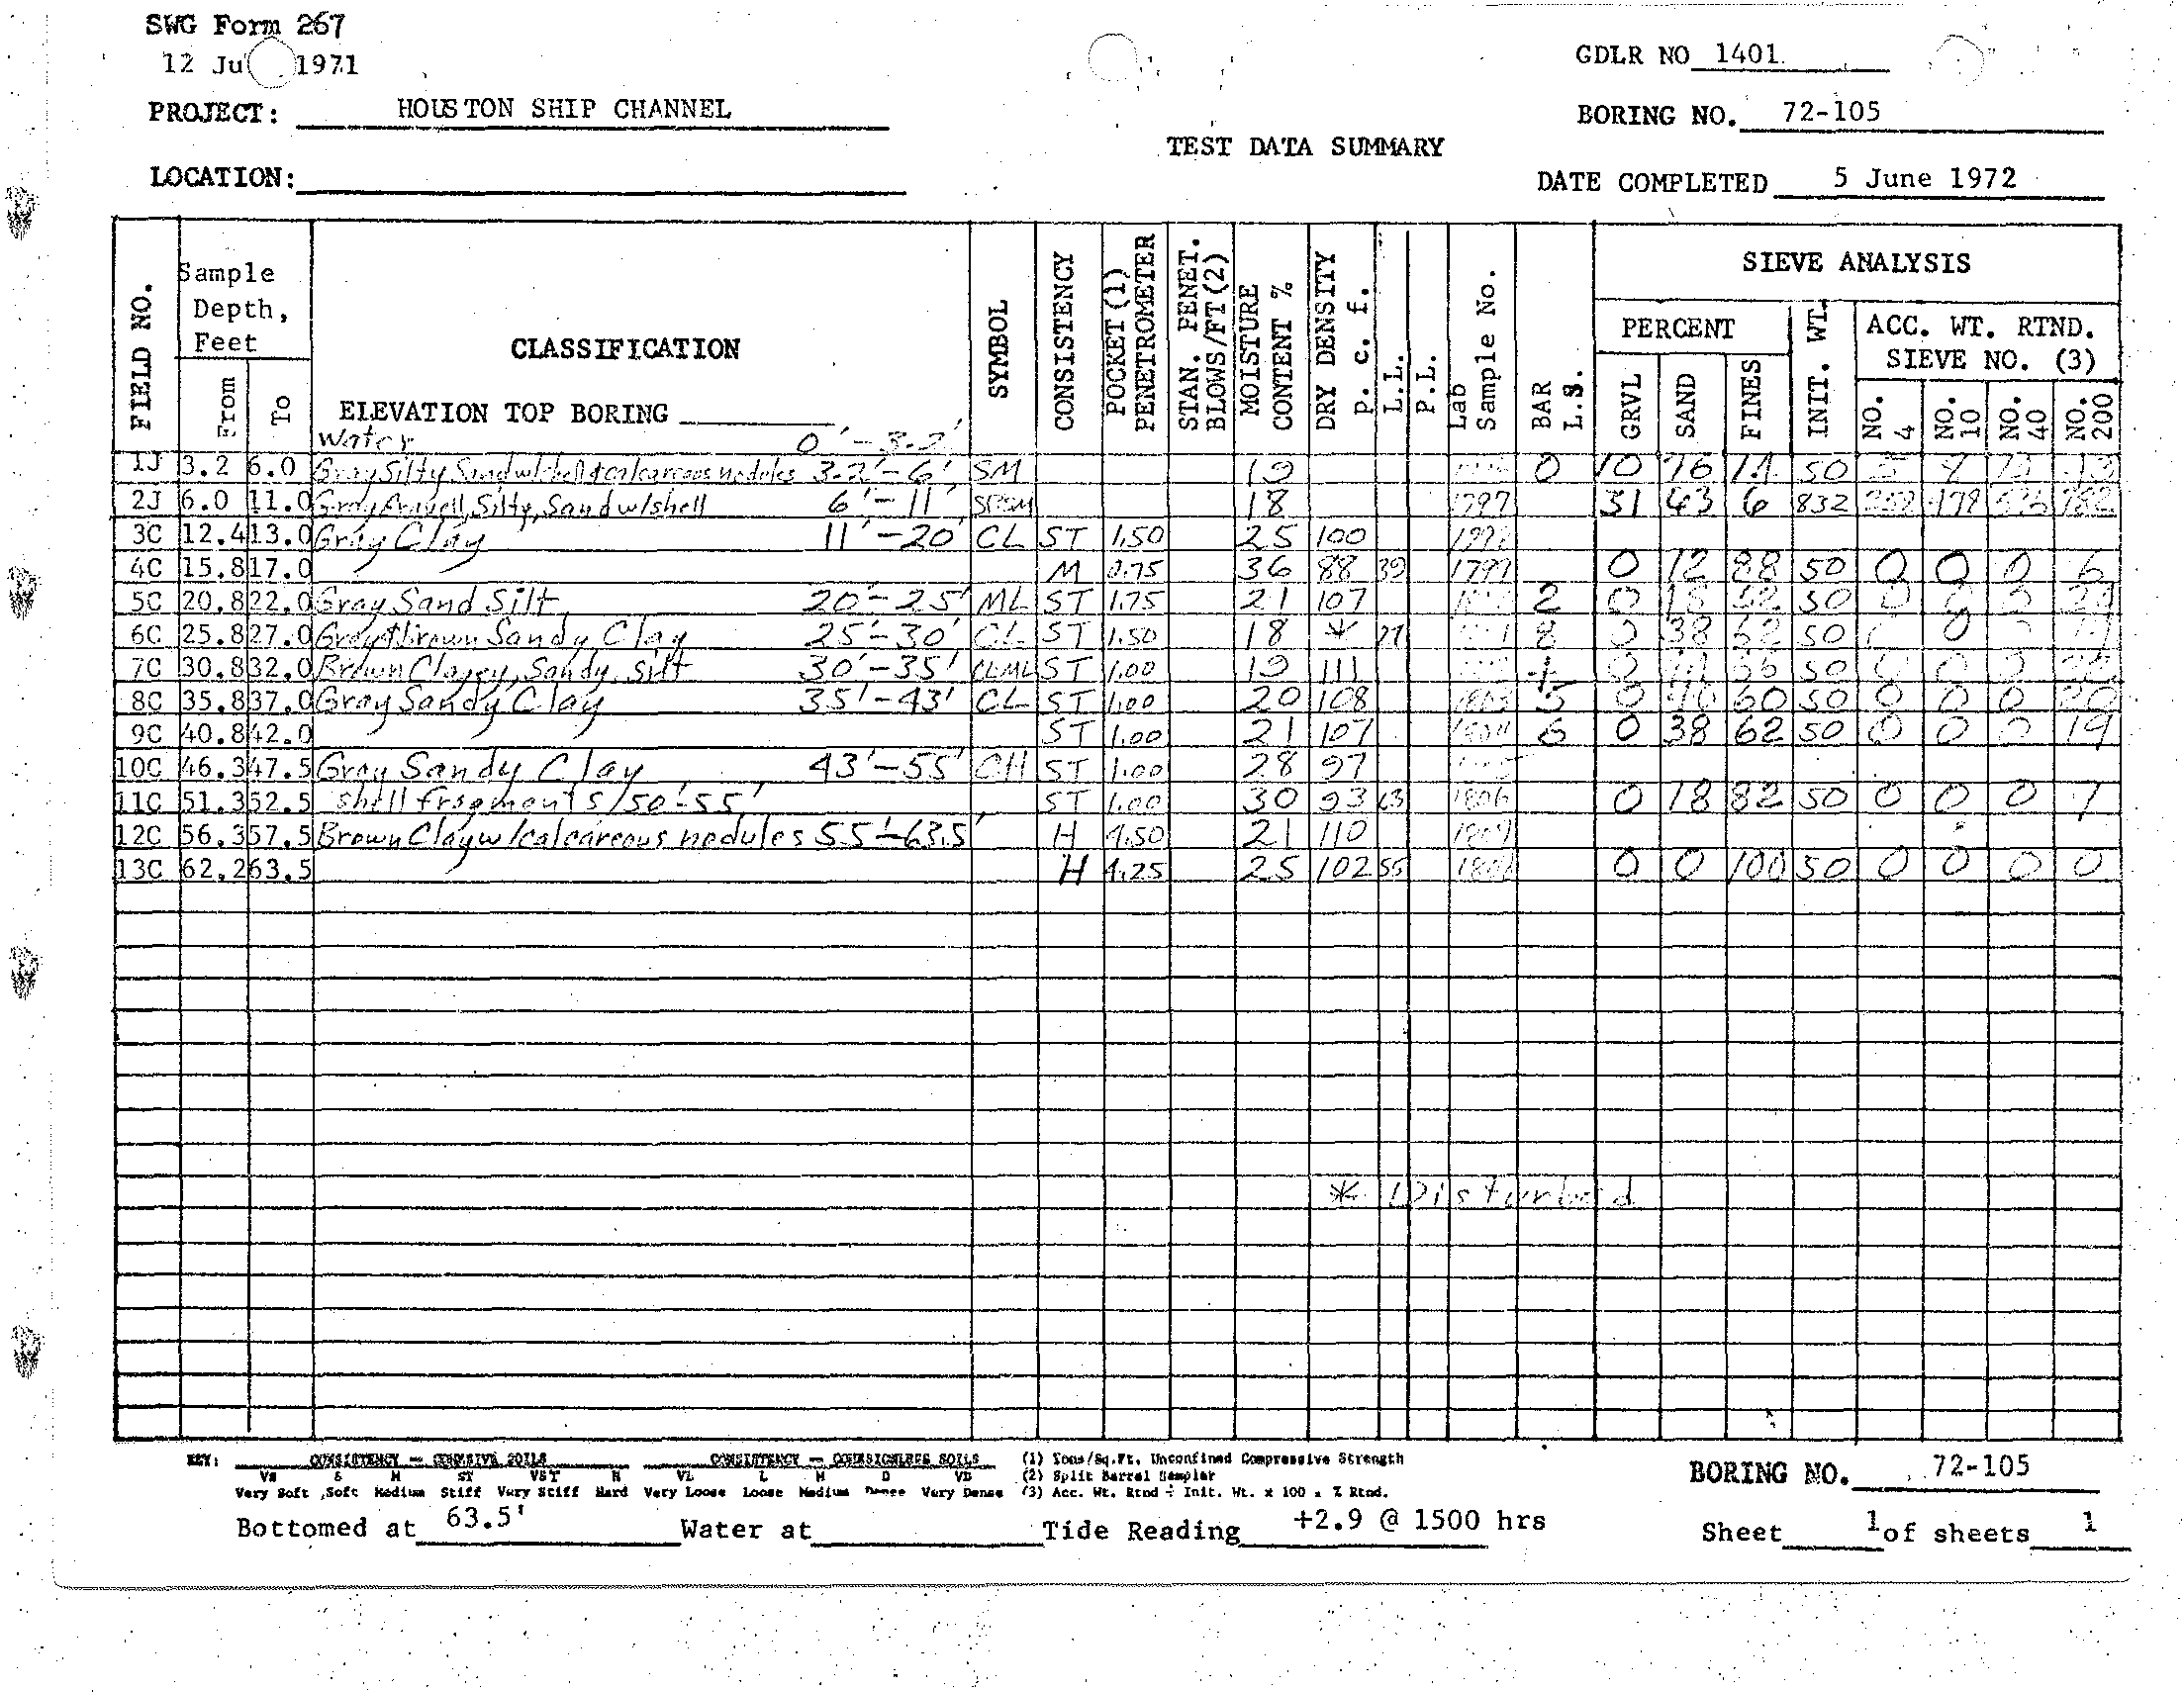 SWG Form 267
12 Ju 1971
GDLR NO 1401
PROJECT: HOUSTON SHIP CHANNEL
BORING NO. 72-105
TEST DATA SUMMARY
LOCATION:
DATE COMPLETED 5 June 1972
FIELD NO.
Sample Depth, Feet
From
To
CLASSIFICATION
ELEVATION TOP BORING
SYMBOL
CONSISTENCY
POCKET (1) PENETROMETER
STAN. PENET. BLOWS/FT(2)
MOISTURE CONTENT %
DRY DENSITY p. c. f.
L.L.
P.L.
Lab Sample No.
BAR L.S.
SIEVE ANALYSIS
PERCENT
GRVL
SAND
FINES
INIT. WT.
ACC. WT. RTND.
SIEVE NO. (3)
NO. 4
NO. 10
NO. 40
NO. 200
Water 0'-3.2'
1J 3.2 6.0 Gray Silty Sand w/shell & calcareous nodules 3.2'-6' SM 19 0 10 76 14 50
2J 6.0 11.0 Gray Gravell, Silty, Sand w/shell 6'-11' SPSM 18 1797 31 63 6 832
3C 12.4 13.0 Gray Clay 11'-20' CL ST 1.50 25 100
4C 15.8 17.0 M 0.75 36 88 39 1799 0 12 88 50 0 0 0 6
5C 20.8 22.0 Gray Sand Silt 20'-25' ML ST 1.75 21 107 2 0 50
6C 25.8 27.0 Gray & brown Sandy Clay 25'-30' CL ST 1.50 18 * 8 0 38 62 50 0
7C 30.8 32.0 Brown Clayey, Sandy, Silt 30'-35' CLML ST 1.00 19 111 0 50 0 0 0
8C 35.8 37.0 Gray Sandy Clay 35'-43' CL ST 1.00 20 108 1803 5 0 40 60 50 0 0 0 20
9C 40.8 42.0 ST 1.00 21 107 1804 6 0 38 62 50 0 0 0 19
10C 46.3 47.5 Gray Sandy Clay 43'-55' CH ST 1.00 28 97
11C 51.3 52.5 shell fragments 50'-55' ST 1.00 30 93 63 1806 0 18 82 50 0 0 0 7
12C 56.3 57.5 Brown Clay w/calcareous nodules 55'-63.5' H 4.50 21 110
13C 62.2 63.5 H 4.25 25 102 55 0 0 100 50 0 0 0 0
* Disturbed
KEY: CONSISTENCY — COHESIVE SOILS CONSISTENCY — COHESIONLESS SOILS (1) Tons/Sq.Ft. Unconfined Compressive Strength
VS S M ST VST H VL L M D VD (2) Split Barrel Sampler
Very Soft Soft Medium Stiff Very Stiff Hard Very Loose Loose Medium Dense Very Dense (3) Acc. Wt. Rtnd ÷ Init. Wt. x 100 = % Rtnd.
BORING NO. 72-105
Bottomed at 63.5' Water at Tide Reading +2.9 @ 1500 hrs
Sheet 1 of sheets 1